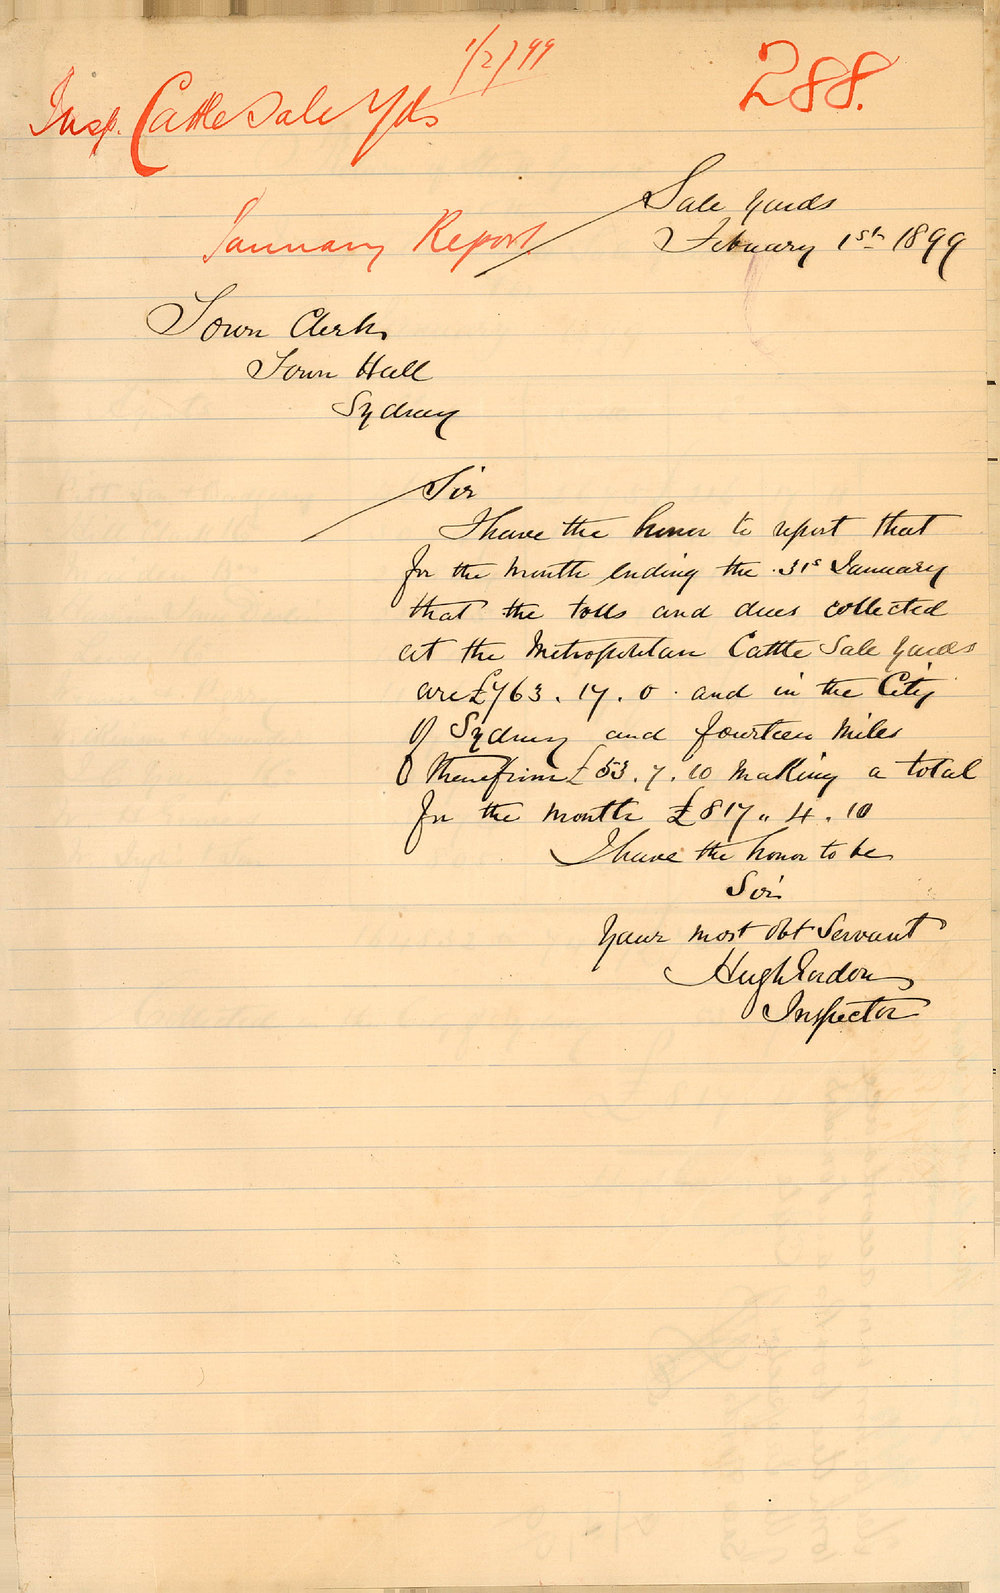 1/2/99
288.
Insp. Cattle Sale Yds
January Report
Sale Yards
February 1st 1899
Town Clerk
Town Hall
Sydney
Sir
I have the honor to report that
for the month ending the 31st January
that the tolls and dues collected
at the Metropolitan Cattle Sale Yards
are £763. 17. 0. and in the City
of Sydney and fourteen miles
therefrom £53. 7. 10 making a total
for the month £817 " 4. 10
I have the honor to be
Sir
Your most obt Servant
Hugh Gordon
Inspector